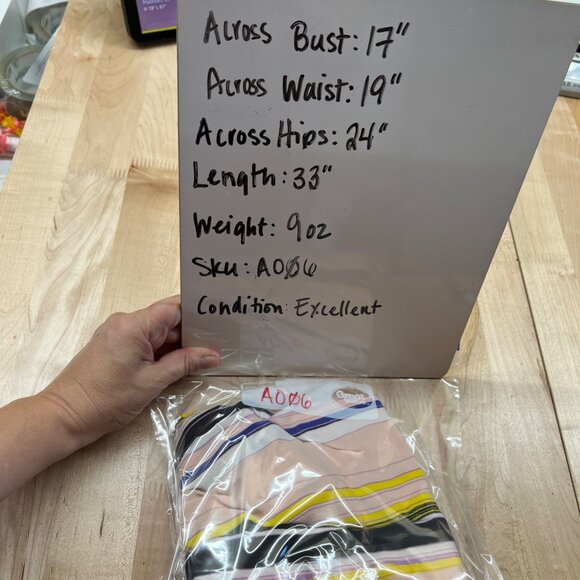 Across Bust: 17"
Across Waist: 19"
Across Hips: 24"
Length: 33"
Weight: 9oz
Sku: A0Ø6
Condition: Excellent
A0Ø6
Great